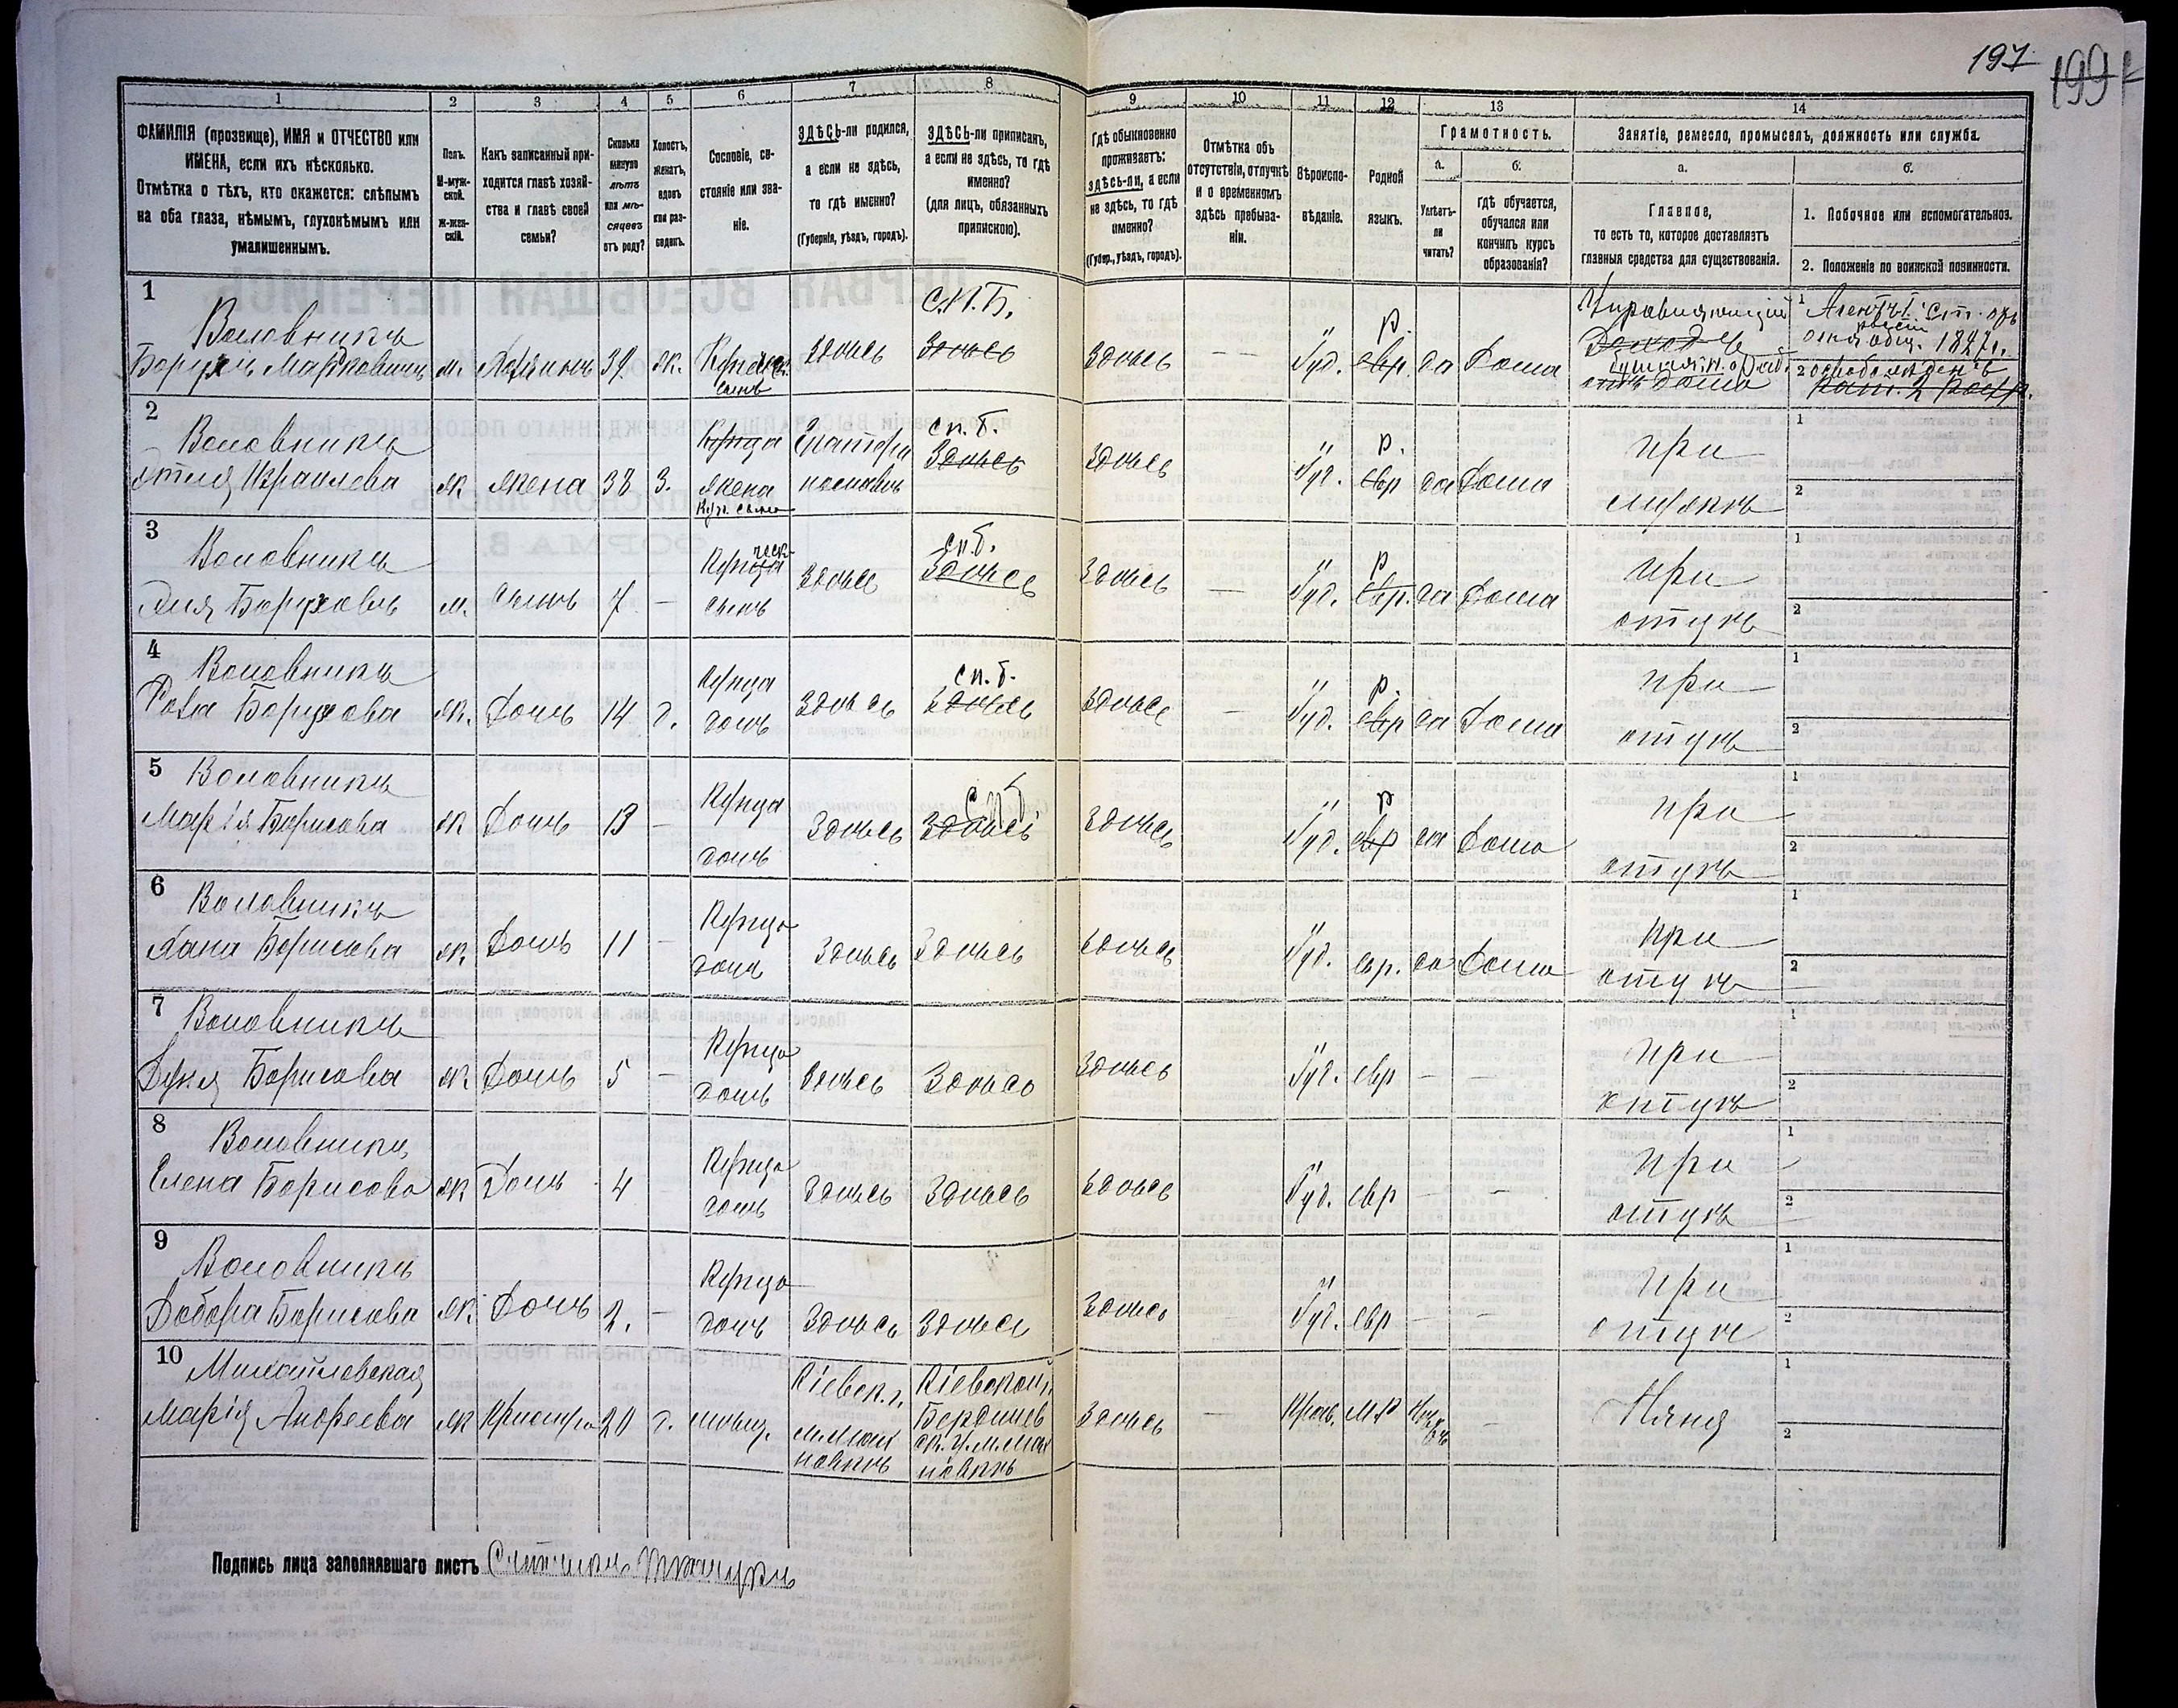 197
199
1 2 3 4 5 6 7 8 9 10 11 12 13 14
ФАМИЛІЯ (прозвище), ИМЯ и ОТЧЕСТВО или ИМЕНА, если ихъ нѣсколько.
Отмѣтка о тѣхъ, кто окажется: слѣпымъ на оба глаза, нѣмымъ, глухонѣмымъ или умалишеннымъ.
Полъ. М-мужской. Ж-женскій.
Какъ записанный приходится главѣ хозяйства и главѣ своей семьи?
Сколько минуло лѣтъ или мѣсяцевъ отъ роду?
Холостъ, женатъ, вдовъ или разведенъ.
Сословіе, состояніе или званіе.
ЗДѢСЬ-ли родился, а если не здѣсь, то гдѣ именно? (Губернія, уѣздъ, городъ).
ЗДѢСЬ-ли приписанъ, а если не здѣсь, то гдѣ именно? (для лицъ, обязанныхъ припискою).
Гдѣ обыкновенно проживаетъ: здѣсь-ли, а если не здѣсь, то гдѣ именно? (Губер., уѣздъ, городъ).
Отмѣтка объ отсутствіи, отлучкѣ и о временномъ здѣсь пребываніи.
Вѣроисповѣданіе.
Родной языкъ.
Грамотность.
а. Умѣетъ-ли читать?
б. гдѣ обучается, обучался или кончилъ курсъ образованія?
Занятіе, ремесло, промыселъ, должность или служба.
а. Главное, то есть то, которое доставляетъ главныя средства для существованія.
б. 1. Побочное или вспомогательное.
2. Положеніе по воинской повинности.
1 Воловникъ С.П.Б. Управляющій
Борухъ Марковичъ м. Хозяинъ 39 ж. сынъ здѣсь Здѣсь Здѣсь — Іуд. р. евр. да Дома
2 Воловникъ Купца сп.б.
Израилева ж жена 38 З. жена Здѣсь Здѣсь Іуд. р. евр да Дома при мужѣ
3 Воловникъ сп.б.
Боруховъ м. Сынъ 7 — сынъ Здѣсь Здѣсь Здѣсь — Іуд. р евр. да Дома при отцѣ
4 Воловникъ Купца сп.б.
Роза Борухова ж. Дочь 14 д. дочь Здѣсь Здѣсь Здѣсь — Іуд. р. евр да Дома при отцѣ
5 Воловникъ Купца СПб
Марія Борисова ж Дочь 13 — дочь Здѣсь Здѣсь Здѣсь Іуд. р евр да Дома при отцѣ
6 Воловникъ Купца
Хана Борисова ж. Дочь 11 — дочь Здѣсь Здѣсь Здѣсь Іуд. евр. да Дома при отцѣ
7 Воловникъ Купца
Борисова ж Дочь 5 — дочь Здѣсь Здѣсь Здѣсь Іуд. евр — — при отцѣ
8 Воловникъ Купца
Елена Борисова ж Дочь 4 дочь Здѣсь Здѣсь Здѣсь Іуд. евр — — при отцѣ
9 Воловникъ Купца
Борисова ж. Дочь 2. — дочь Здѣсь Здѣсь Здѣсь Іуд. евр — — при отцѣ
10 Михайловская Кіевск. г. Кіевской
Марія Андреева ж 20 д. Бердичев Здѣсь — Няня
Подпись лица заполнявшаго листъ